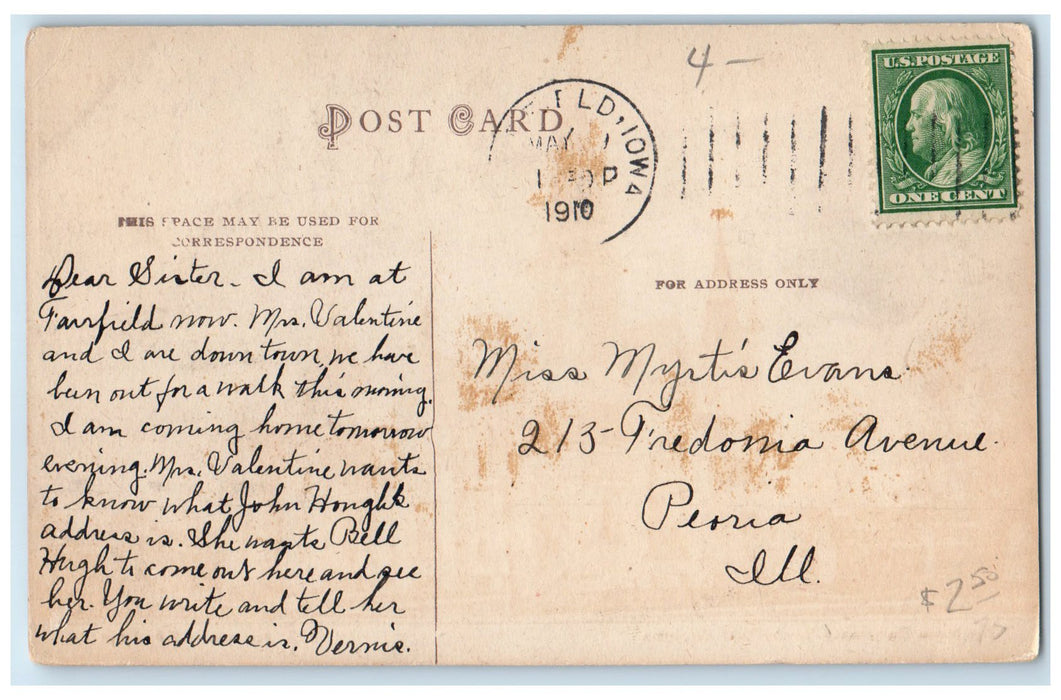 4 —
U.S. POSTAGE
ONE CENT
POST CARD
FLD, IOWA
MAY
P
1910
THIS SPACE MAY BE USED FOR
CORRESPONDENCE
FOR ADDRESS ONLY
Dear Sister - I am at
Fairfield now. Mrs. Valentine
and I are down town, we have
been out for a walk this morning.
I am coming home tomorrow
evening. Mrs. Valentine wants
to know what John
address is. She wants Bell
Hugh to come out here and see
her. You write and tell her
what his address is. Vernis.
Miss Myrtis Evans.
213 Fredonia Avenue.
Peoria
Ill.
$2.50